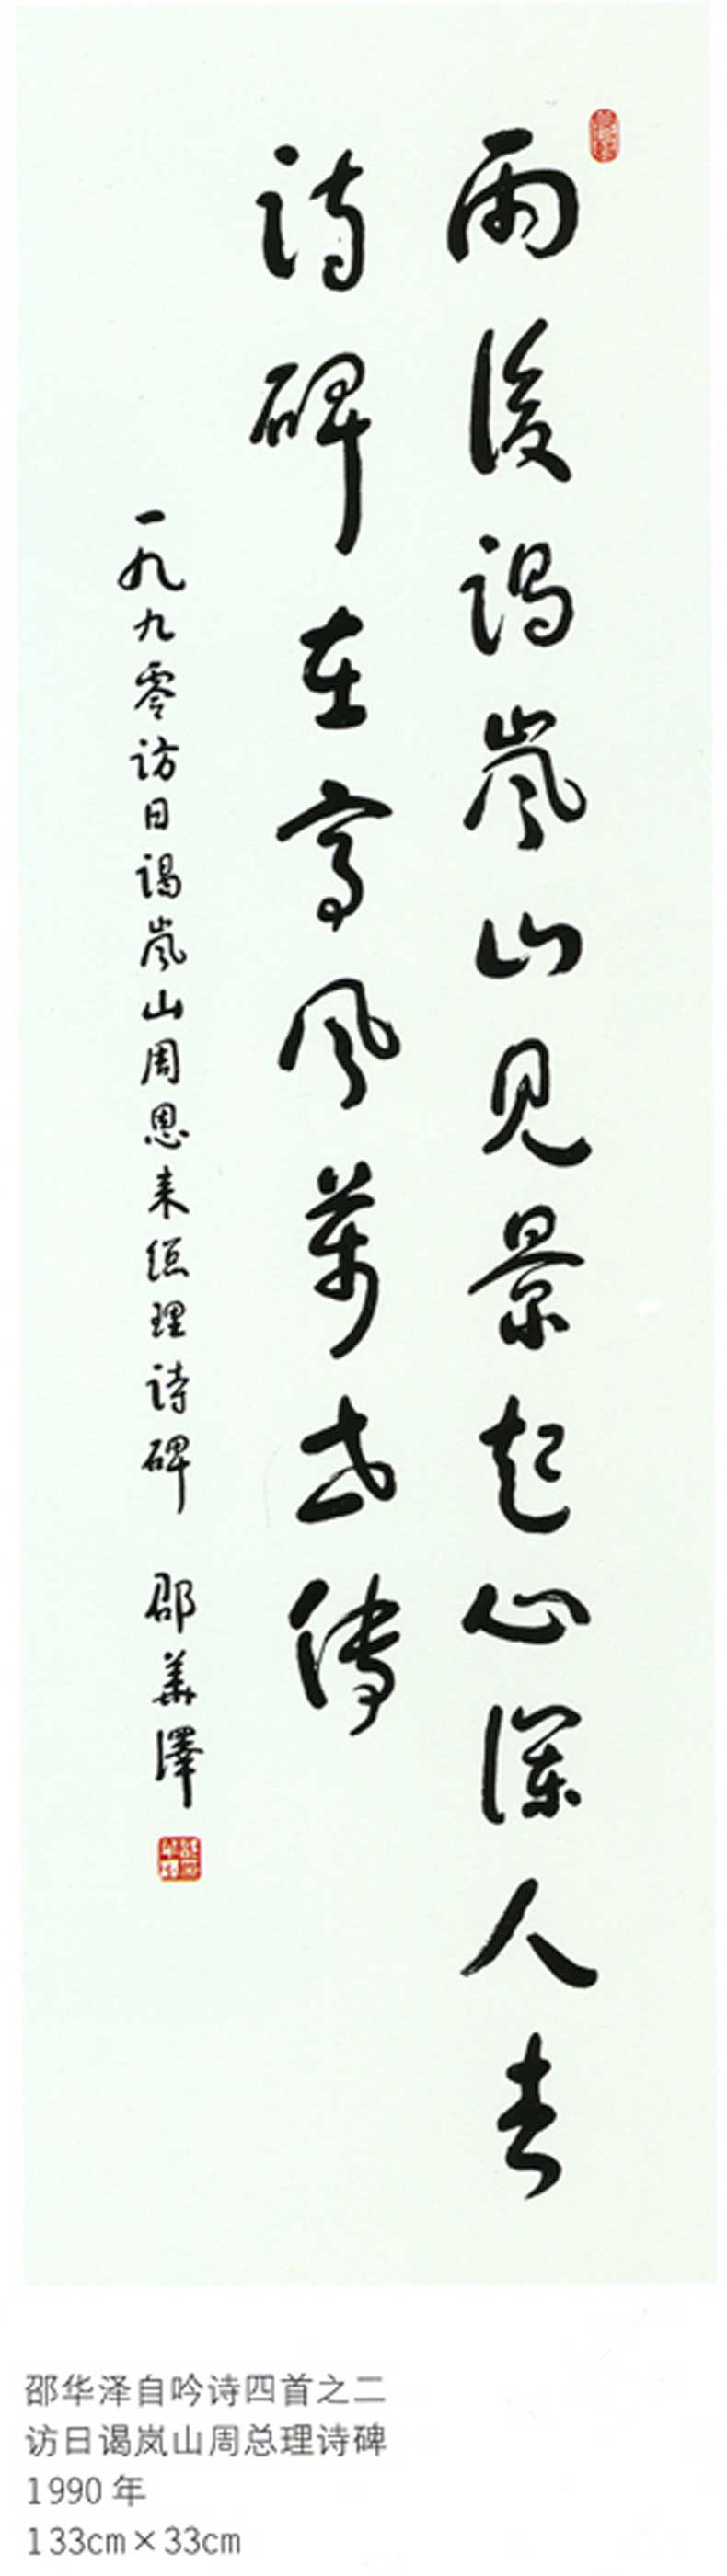 雨後谒岚山见景起心澜人去
诗碑在高风萬世傳
一九九零访日谒岚山周恩来總理诗碑 邵華澤
邵华泽自吟诗四首之二
访日谒岚山周总理诗碑
1990年
133cm×33cm